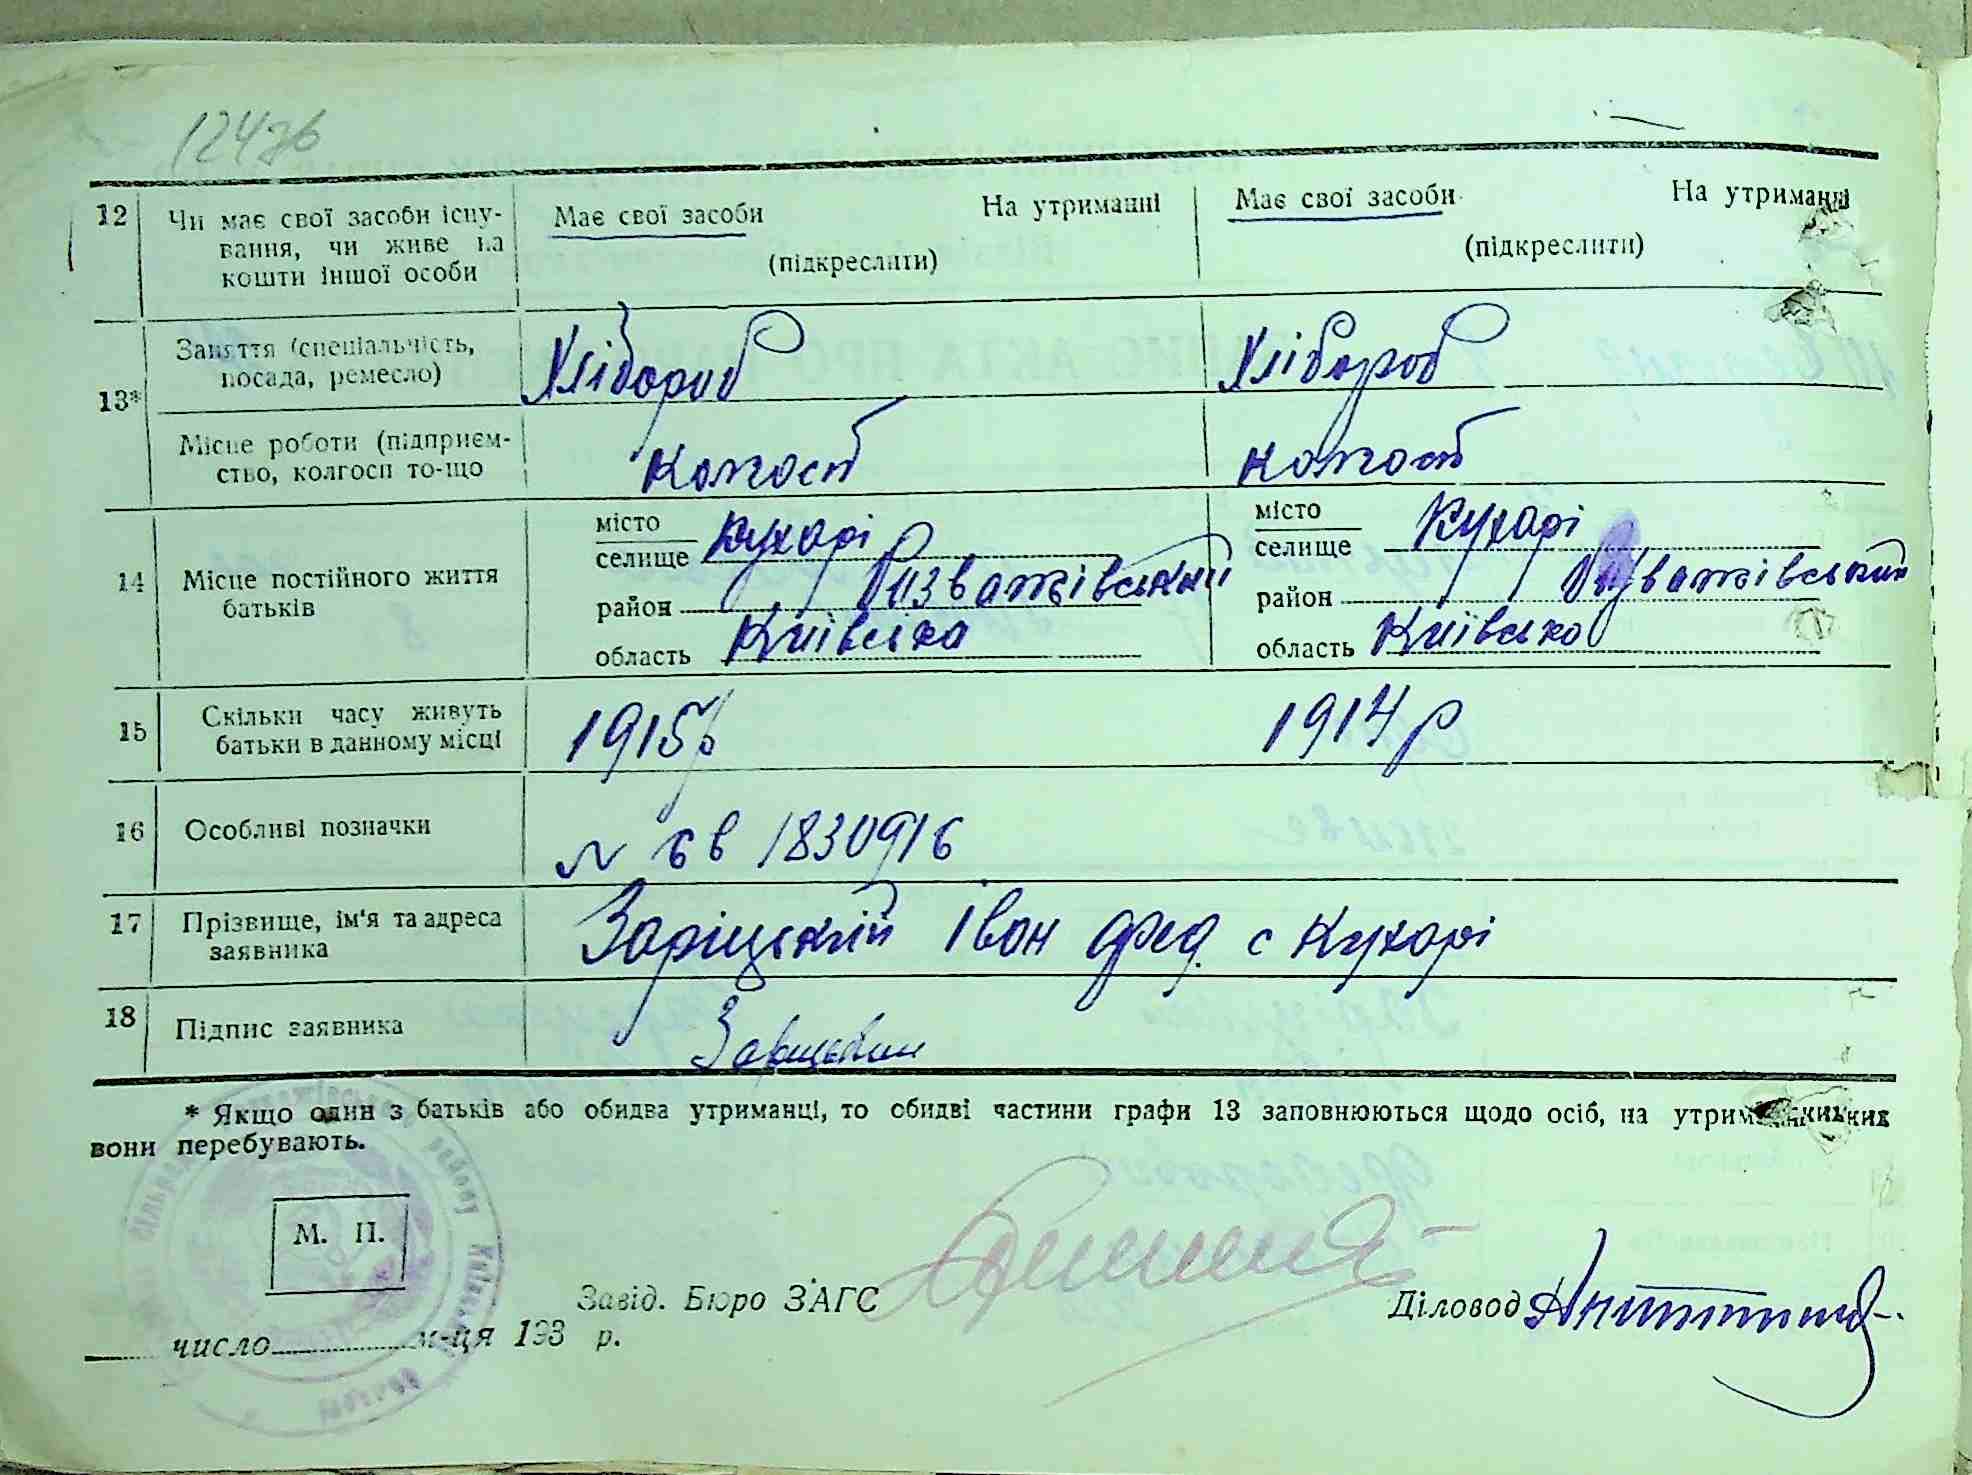 124зв
12 Чи має свої засоби існу- Має свої засоби На утриманні Має свої засоби На утриманні
вання, чи живе на (підкреслити) (підкреслити)
кошти іншої особи
13* Заняття (спеціальність, Хлібороб Хлібороб
посада, ремесло)
Місце роботи (підприєм- колгосп колгосп
ство, колгосп то-що
14 Місце постійного життя батьків
місто Кухарі місто Кухарі
селище селище
район Розважівський район Розважівський
область Київська область Київська
15 Скільки часу живуть 1915р 1914р
батьки в данному місці
16 Особливі позначки N бв 1830916
17 Прізвище, ім'я та адреса Заріцький Іван Фед. с Кухарі
заявника
18 Підпис заявника Заріцький
* Якщо один з батьків або обидва утриманці, то обидві частини графи 13 заповнюються щодо осіб, на утриманні яких
вони перебувають.
М. П.
Завід. Бюро ЗАГС
Діловод
число м-ця 193 р.
району Київської області